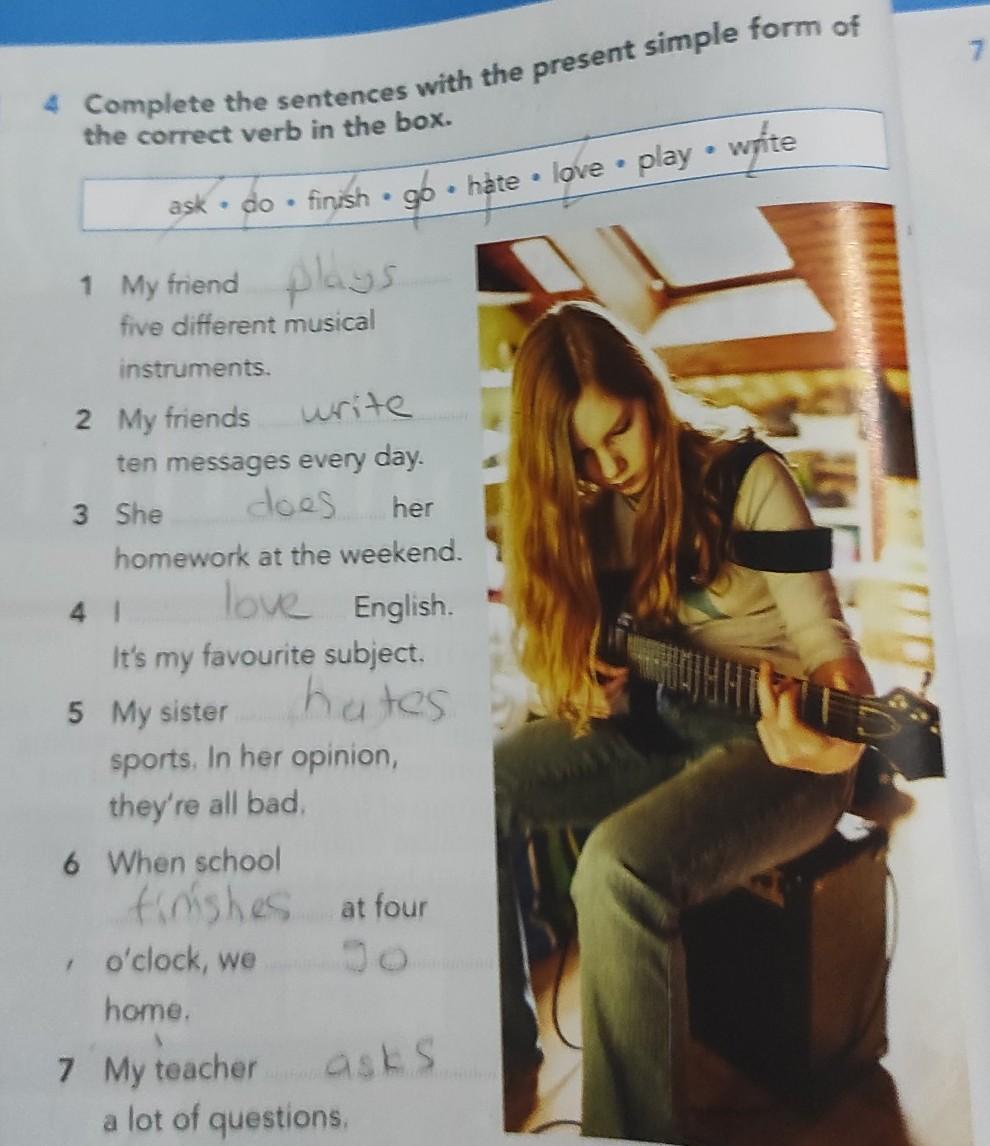 4 Complete the sentences with the present simple form of
the correct verb in the box.
7
ask • do • finish • go • hate • love • play • write
1 My friend plays
five different musical
instruments.
2 My friends write
ten messages every day.
3 She does her
homework at the weekend.
4 I love English.
It's my favourite subject.
5 My sister hates
sports. In her opinion,
they're all bad.
6 When school
finishes at four
o'clock, we go
home.
7 My teacher asks
a lot of questions.